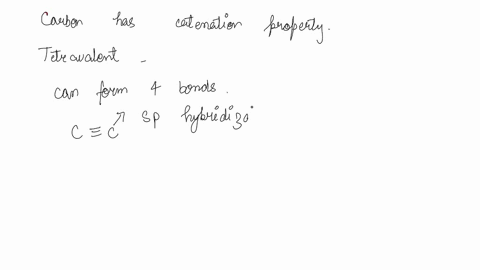 Carbon has catenation property.
Tetravalent -
can form 4 bonds.
C ≡ C ↗ sp hybridiza